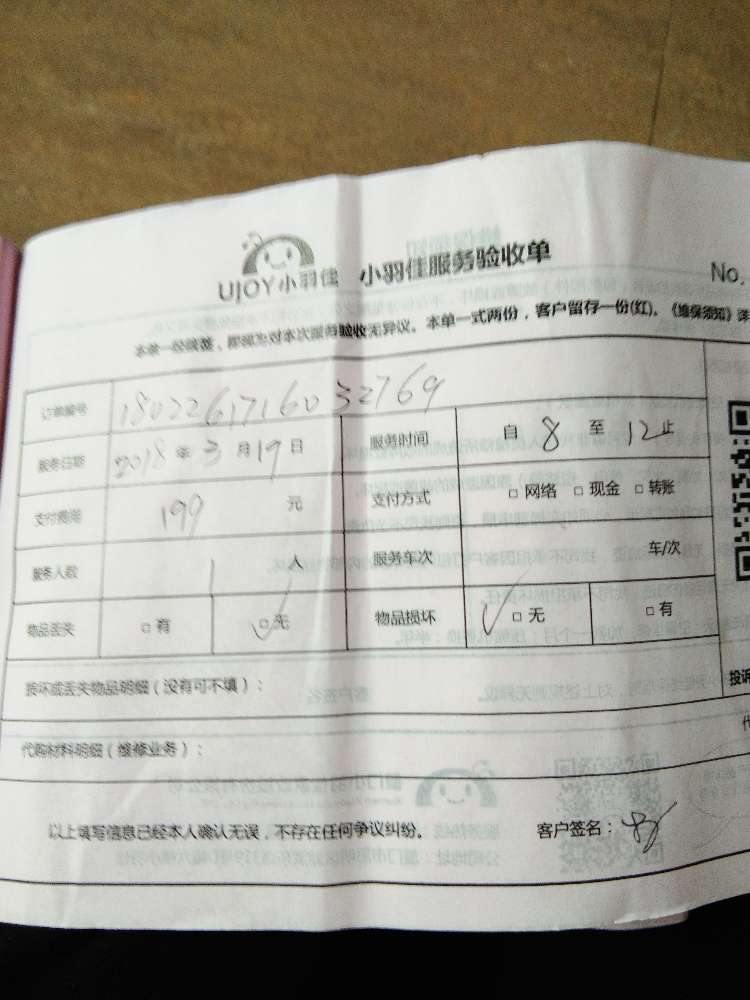 UJOY小羽佳 小羽佳服务验收单
No.
本单一经签签，即视为对本次服务验收无异议。本单一式两份，客户留存一份(红)。《维保须知》详
订单编号 1802261716032769
服务日期 2018年3月19日 服务时间 自8至12止
支付费用 199元 支付方式 □网络 □现金 □转账
服务人数 1人 服务车次 车/次
物品丢失 □有 □无 物品损坏 □无 □有
损坏或丢失物品明细（没有可不填）：
投诉
代购材料明细（维修业务）：
以上填写信息已经本人确认无误，不存在任何争议纠纷。 客户签名：